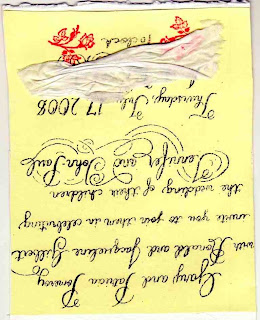 Gary and Patricia
with Ronald and Jacqueline Gilbert
invite you to join them in celebrating
the wedding of their children
Jennifer and John Paul
Thursday, July 17 2008
o'clock